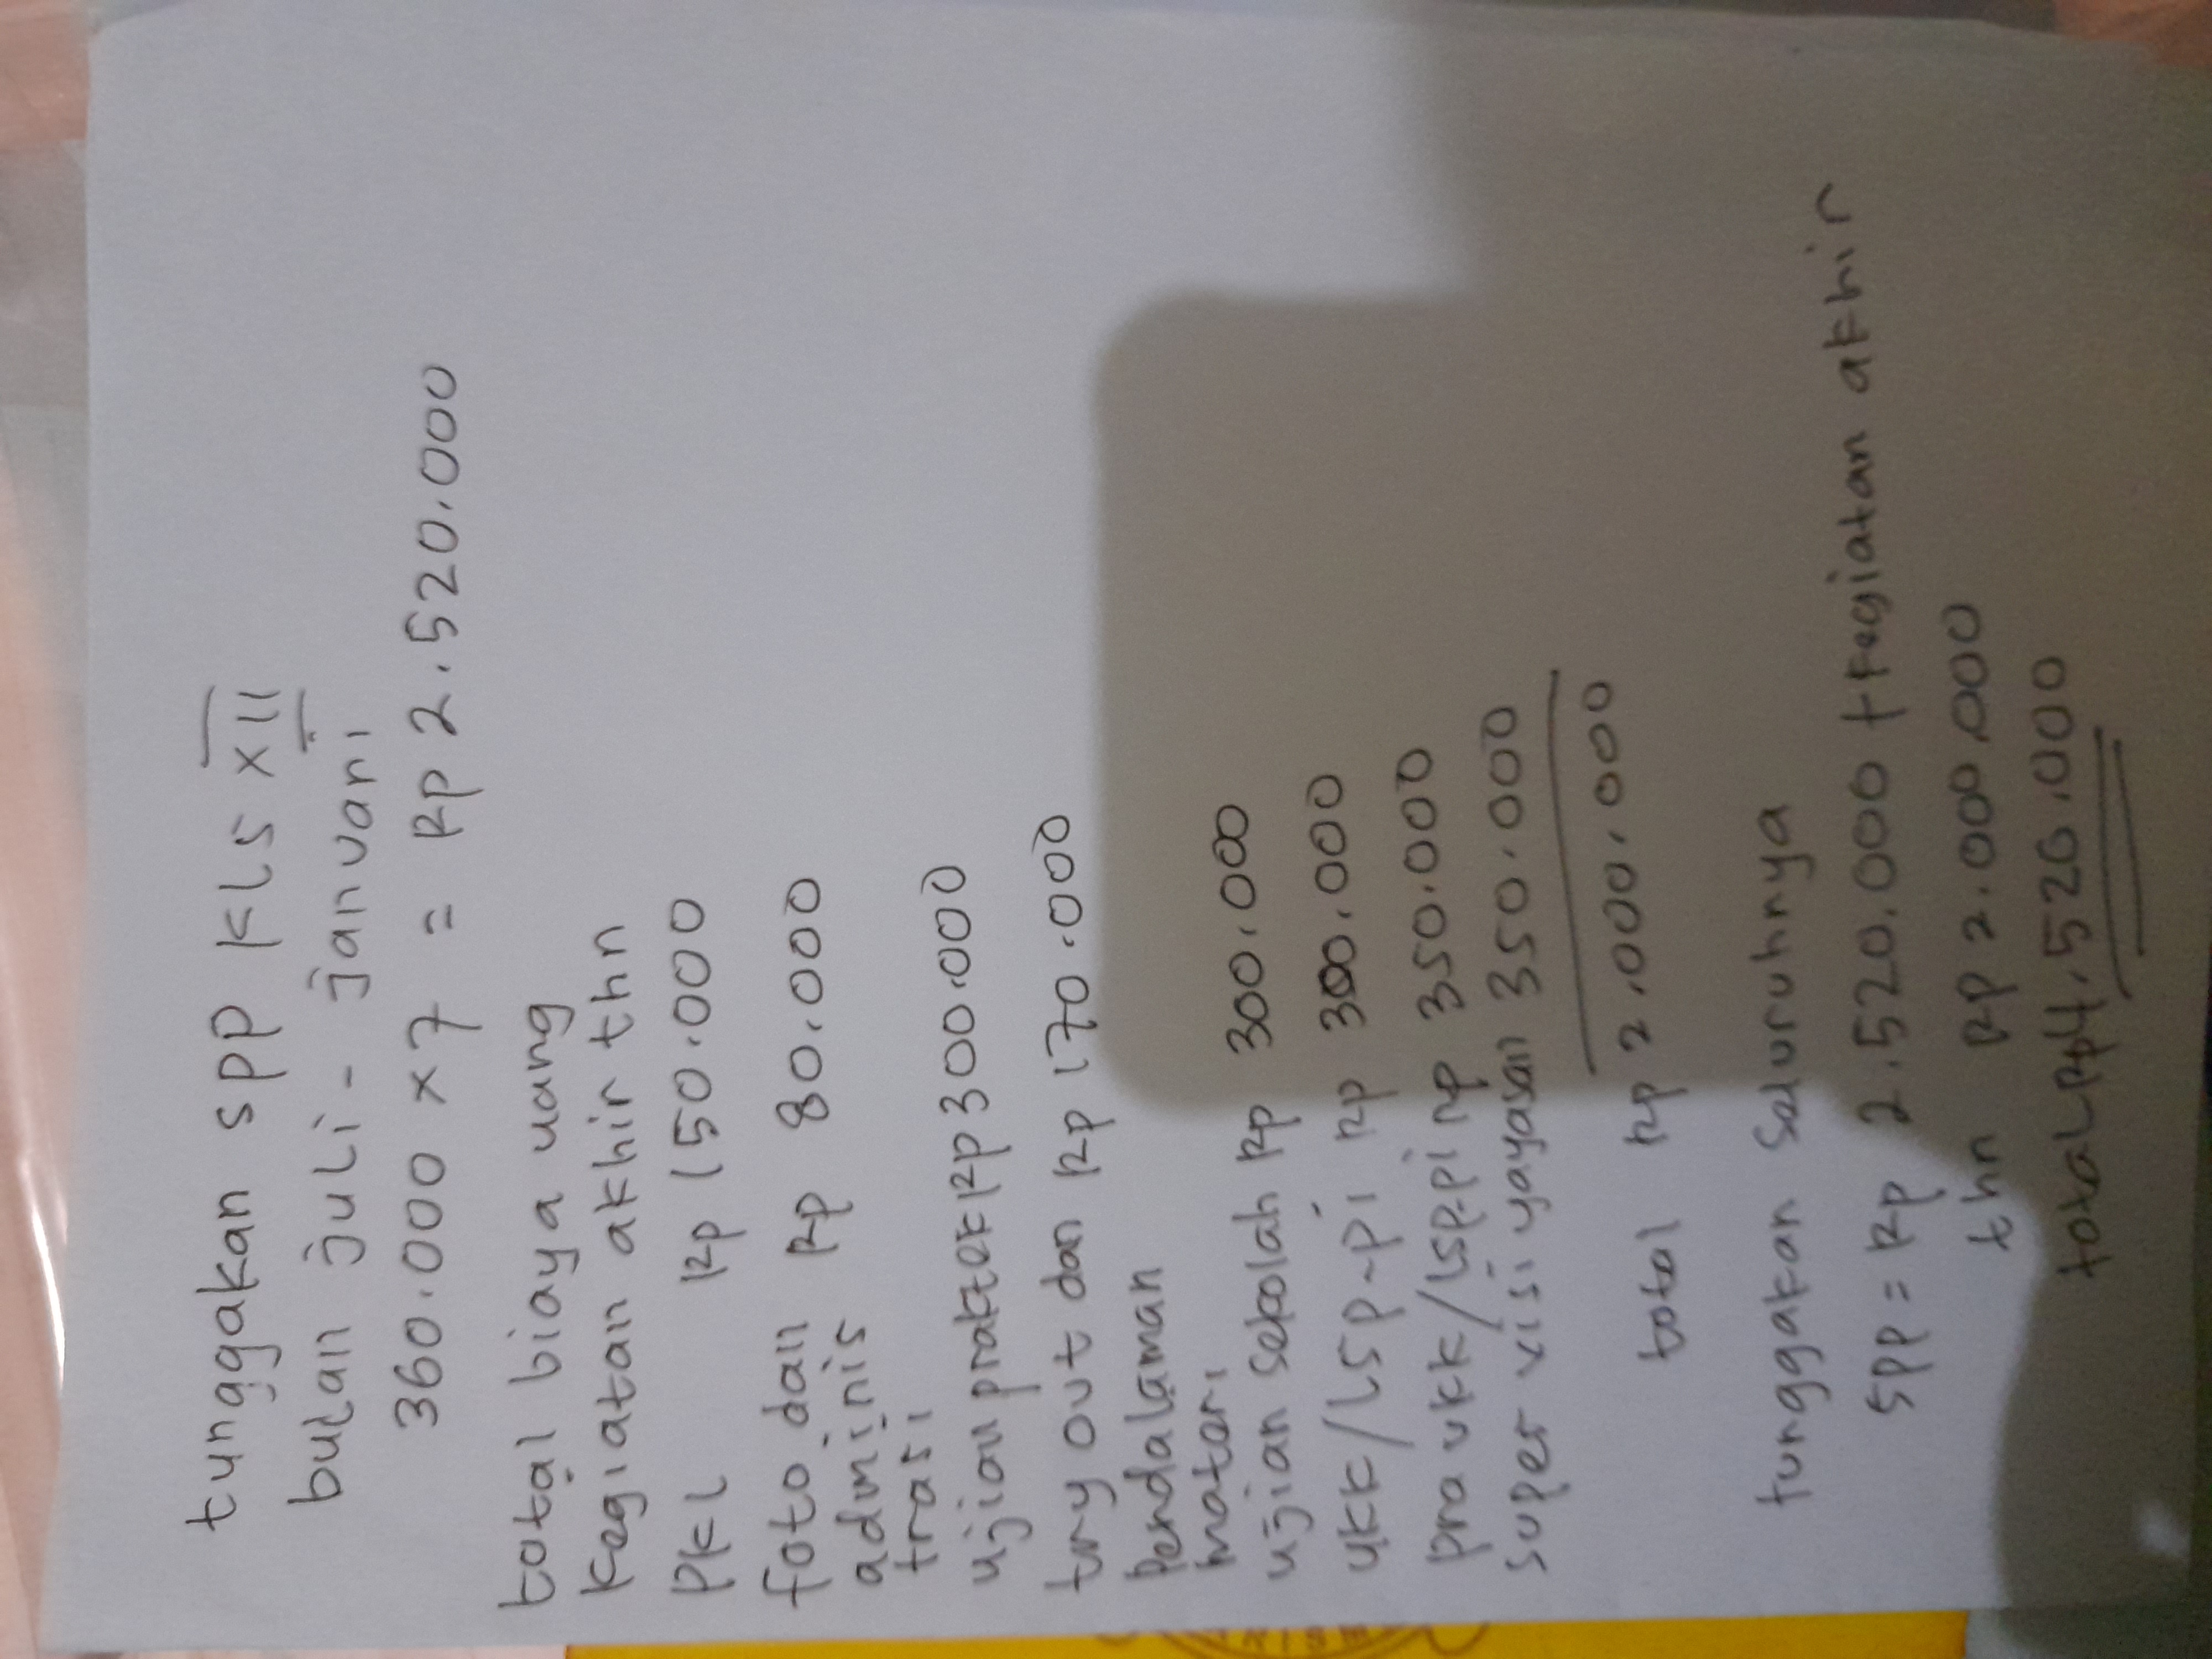 tunggakan spp kls XII
bulan juli - januari
360.000 x 7 = Rp 2.520.000
total biaya uang
kegiatan akhir thn
PKL Rp 150.000
foto dan Rp 80.000
adminis
trasi
ujian praktek Rp 300.000
try out dan Rp 170.000
Pendalaman
materi
ujian sekolah Rp 300.000
ukk/LSP-Pi Rp 300.000
pra ukk/LSP.Pi Rp 350.000
super visi yayasan 350.000
total Rp 2.000.000
tunggakan seluruhnya
SPP = Rp 2.520.000 + kegiatan akhir
thn Rp 2.000.000
total Rp 4.520.000